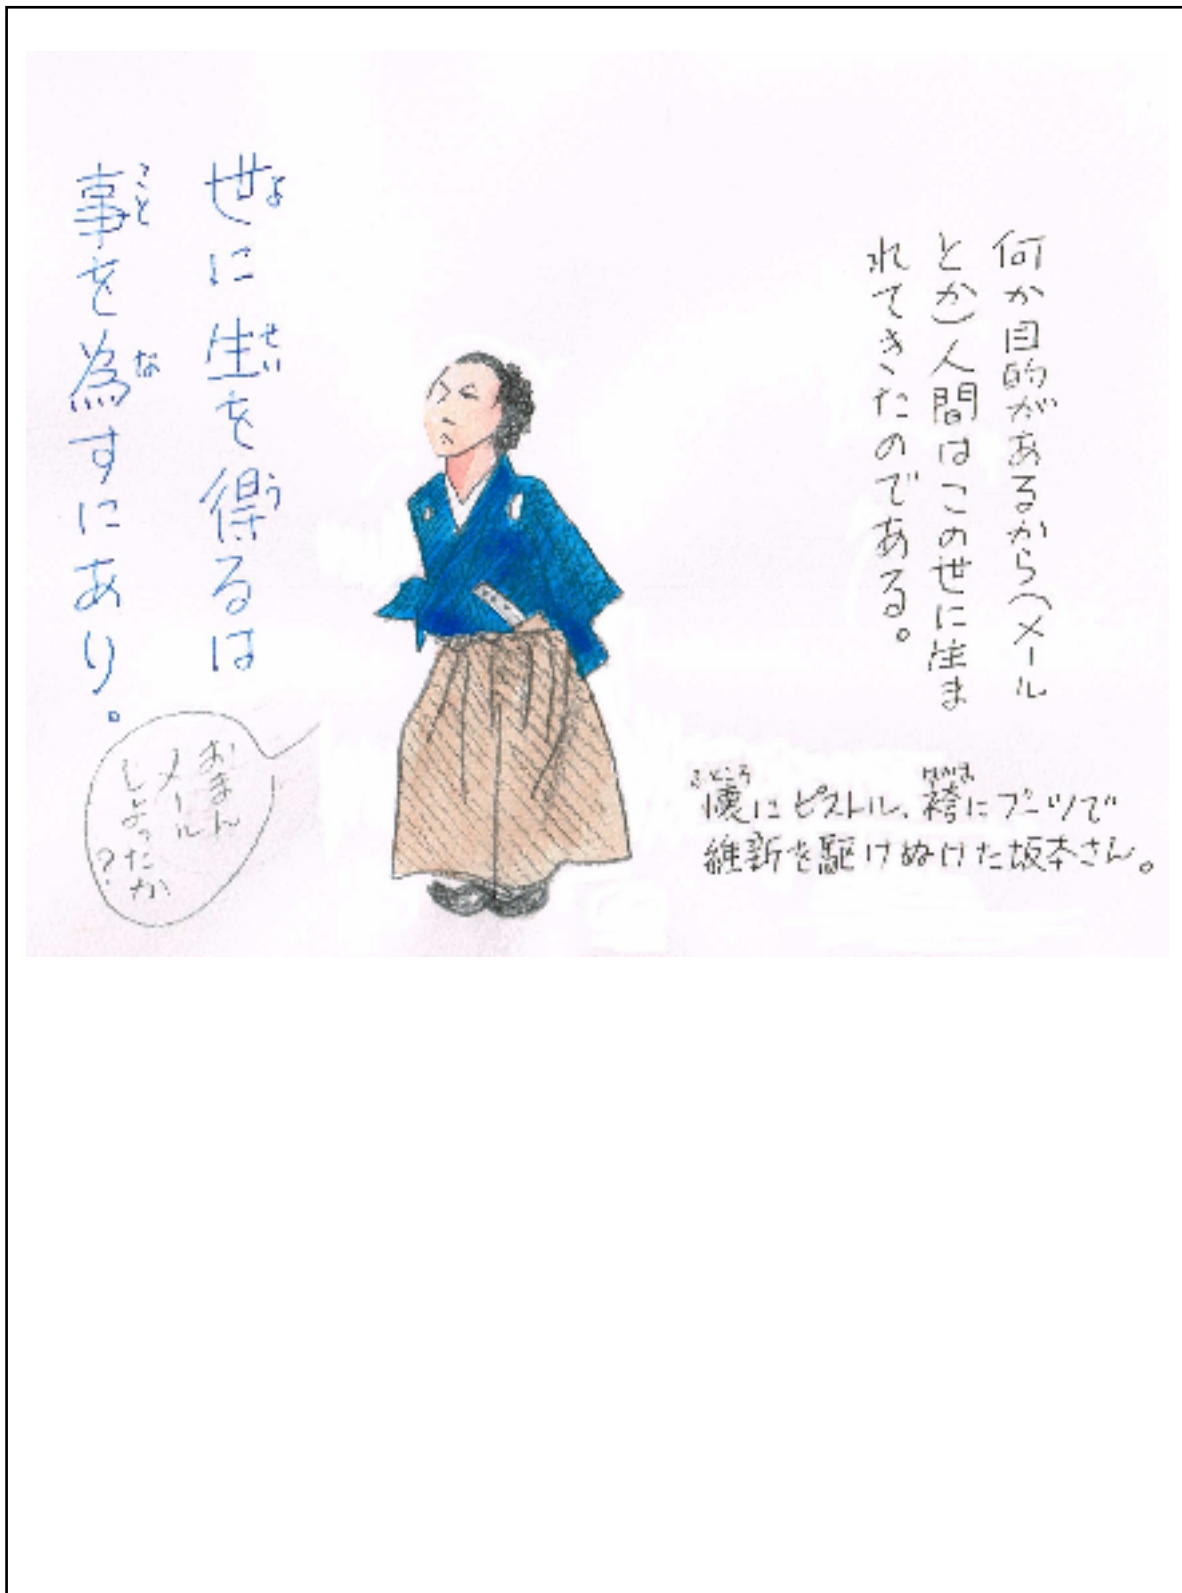 何か目的があるから(メール
とか)人間はこの世に生ま
れてきたのである。
懐にピストル、袴にブーツで
維新を駆けぬけた坂本さん。
世に生を得るは
事を為すにあり。
おまん
メール
しよったか
?